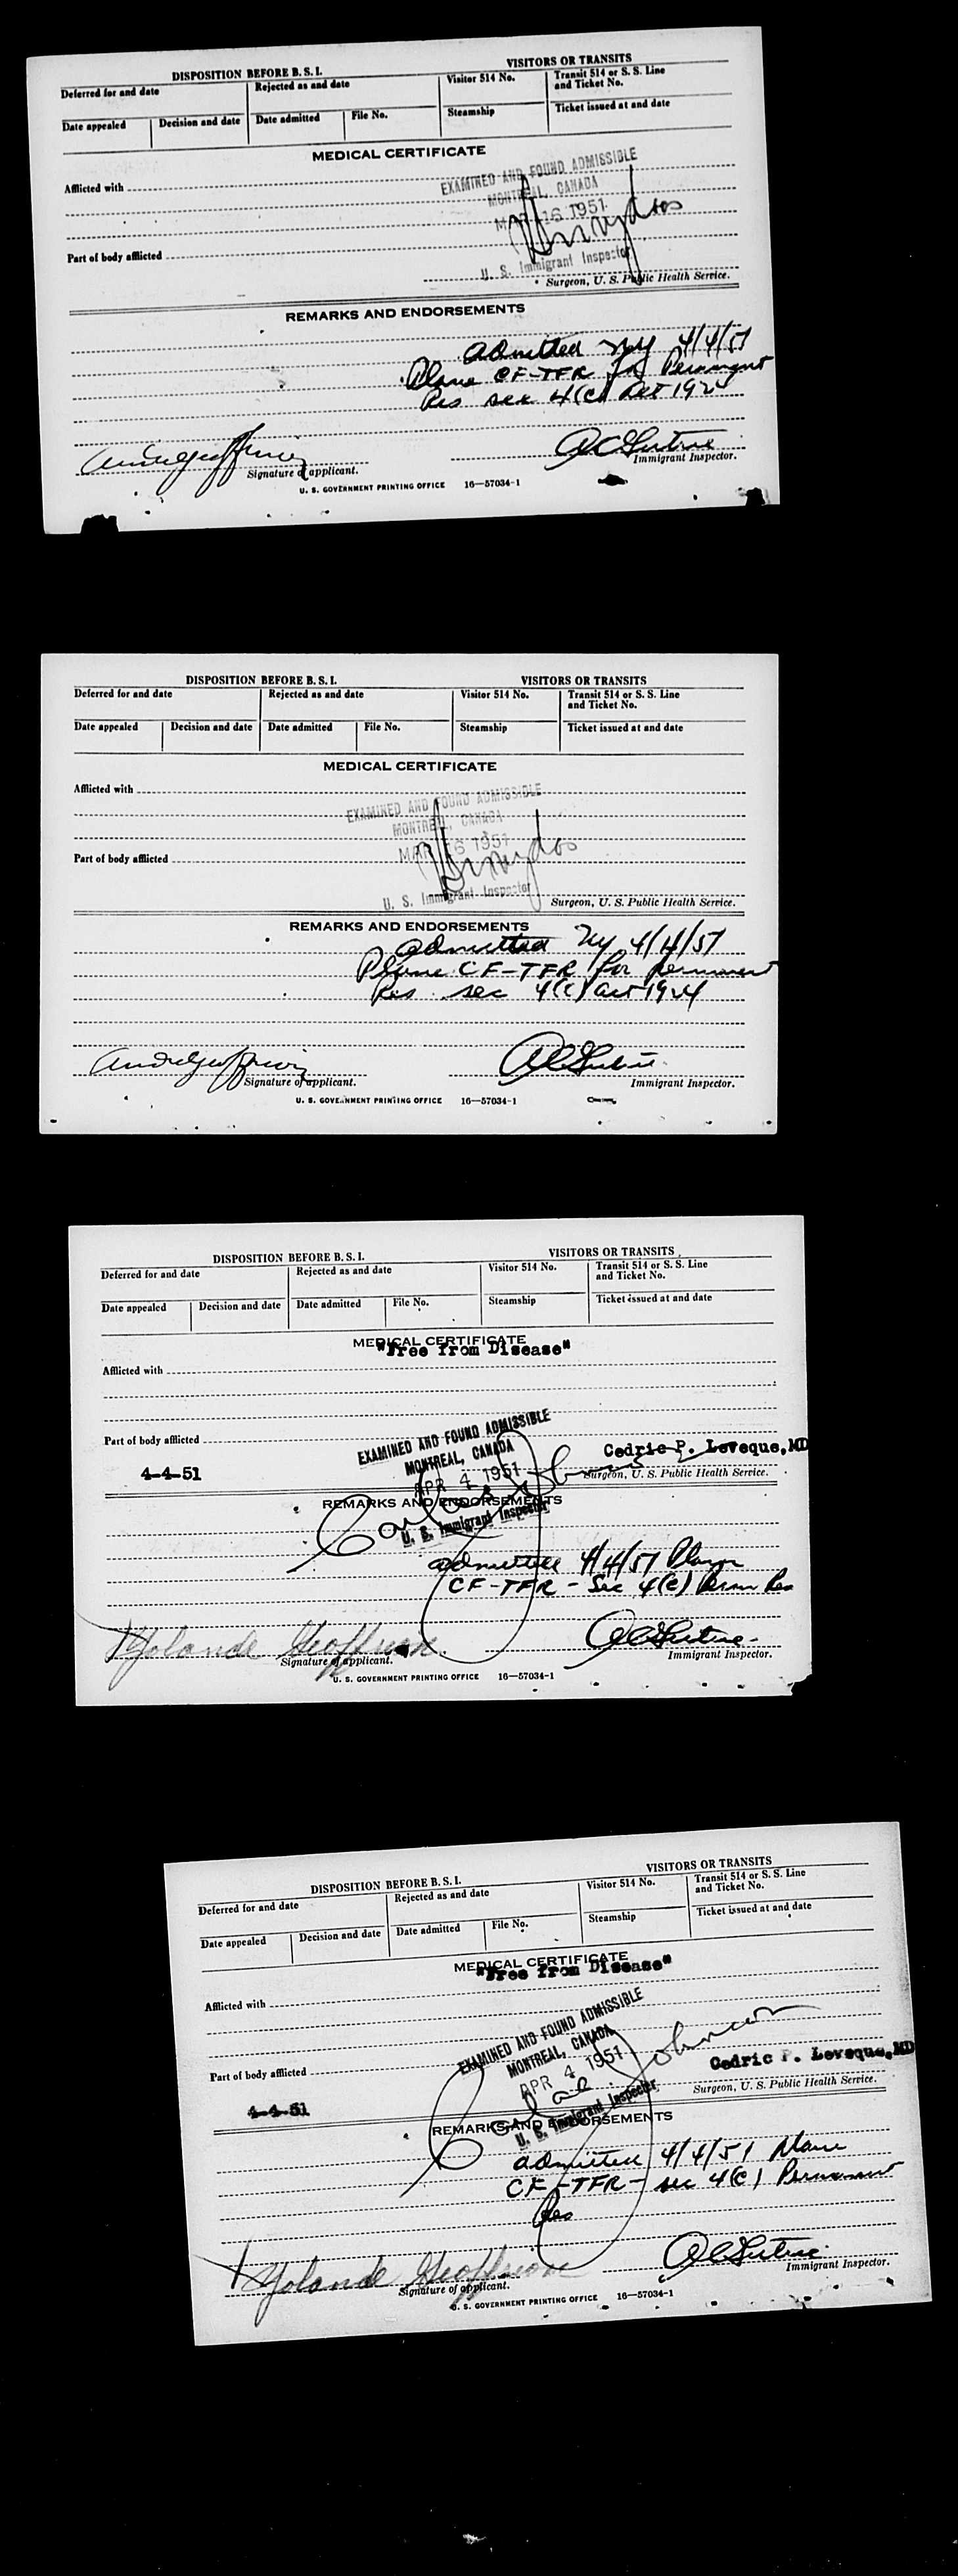 DISPOSITION BEFORE B. S. I.
VISITORS OR TRANSITS
Deferred for and date
Rejected as and date
Visitor 514 No.
Transit 514 or S. S. Line and Ticket No.
Date appealed
Decision and date
Date admitted
File No.
Steamship
Ticket issued at and date
MEDICAL CERTIFICATE
Afflicted with
EXAMINED AND FOUND ADMISSIBLE
MONTREAL, CANADA
MAR 16 1951
U. S. Immigrant Inspector
Part of body afflicted
Surgeon, U. S. Public Health Service.
REMARKS AND ENDORSEMENTS
admitted NY 4/4/51
Plane CF-TFR for Permanent
Res sec 4(c) Act 1924
Signature of applicant.
Immigrant Inspector.
U. S. GOVERNMENT PRINTING OFFICE 16—57034-1
DISPOSITION BEFORE B. S. I.
VISITORS OR TRANSITS
Deferred for and date
Rejected as and date
Visitor 514 No.
Transit 514 or S. S. Line and Ticket No.
Date appealed
Decision and date
Date admitted
File No.
Steamship
Ticket issued at and date
MEDICAL CERTIFICATE
Afflicted with
EXAMINED AND FOUND ADMISSIBLE
MONTREAL, CANADA
MAR 16 1951
U. S. Immigrant Inspector
Part of body afflicted
Surgeon, U. S. Public Health Service.
REMARKS AND ENDORSEMENTS
admitted Ny 4/4/51
Plane CF-TFR for Permanent
Res. sec 4(c) act 1924
Signature of applicant.
Immigrant Inspector.
U. S. GOVERNMENT PRINTING OFFICE 16—57034-1
DISPOSITION BEFORE B. S. I.
VISITORS OR TRANSITS
Deferred for and date
Rejected as and date
Visitor 514 No.
Transit 514 or S. S. Line and Ticket No.
Date appealed
Decision and date
Date admitted
File No.
Steamship
Ticket issued at and date
MEDICAL CERTIFICATE
"Free from Disease"
Afflicted with
Part of body afflicted
EXAMINED AND FOUND ADMISSIBLE
MONTREAL, CANADA
APR 4 1951
U. S. Immigrant Inspector
Cedric P. Leveque, MD
4-4-51
Surgeon, U. S. Public Health Service.
REMARKS AND ENDORSEMENTS
admitted 4/4/51 Plane
CF-TFR - Sec 4(c) Perm Res
X Yolande Geoffrion
Signature of applicant.
Immigrant Inspector.
U. S. GOVERNMENT PRINTING OFFICE 16—57034-1
DISPOSITION BEFORE B. S. I.
VISITORS OR TRANSITS
Deferred for and date
Rejected as and date
Visitor 514 No.
Transit 514 or S. S. Line and Ticket No.
Date appealed
Decision and date
Date admitted
File No.
Steamship
Ticket issued at and date
MEDICAL CERTIFICATE
"Free from Disease"
Afflicted with
EXAMINED AND FOUND ADMISSIBLE
MONTREAL, CANADA
APR 4 1951
U. S. Immigrant Inspector
Part of body afflicted
Cedric P. Leveque, MD
4-4-51
Surgeon, U. S. Public Health Service.
REMARKS AND ENDORSEMENTS
admitted 4/4/51 Plane
CF-TFR - sec 4(c) Permanent
Res
X Yolande Geoffrion
Signature of applicant.
Immigrant Inspector.
U. S. GOVERNMENT PRINTING OFFICE 16—57034-1